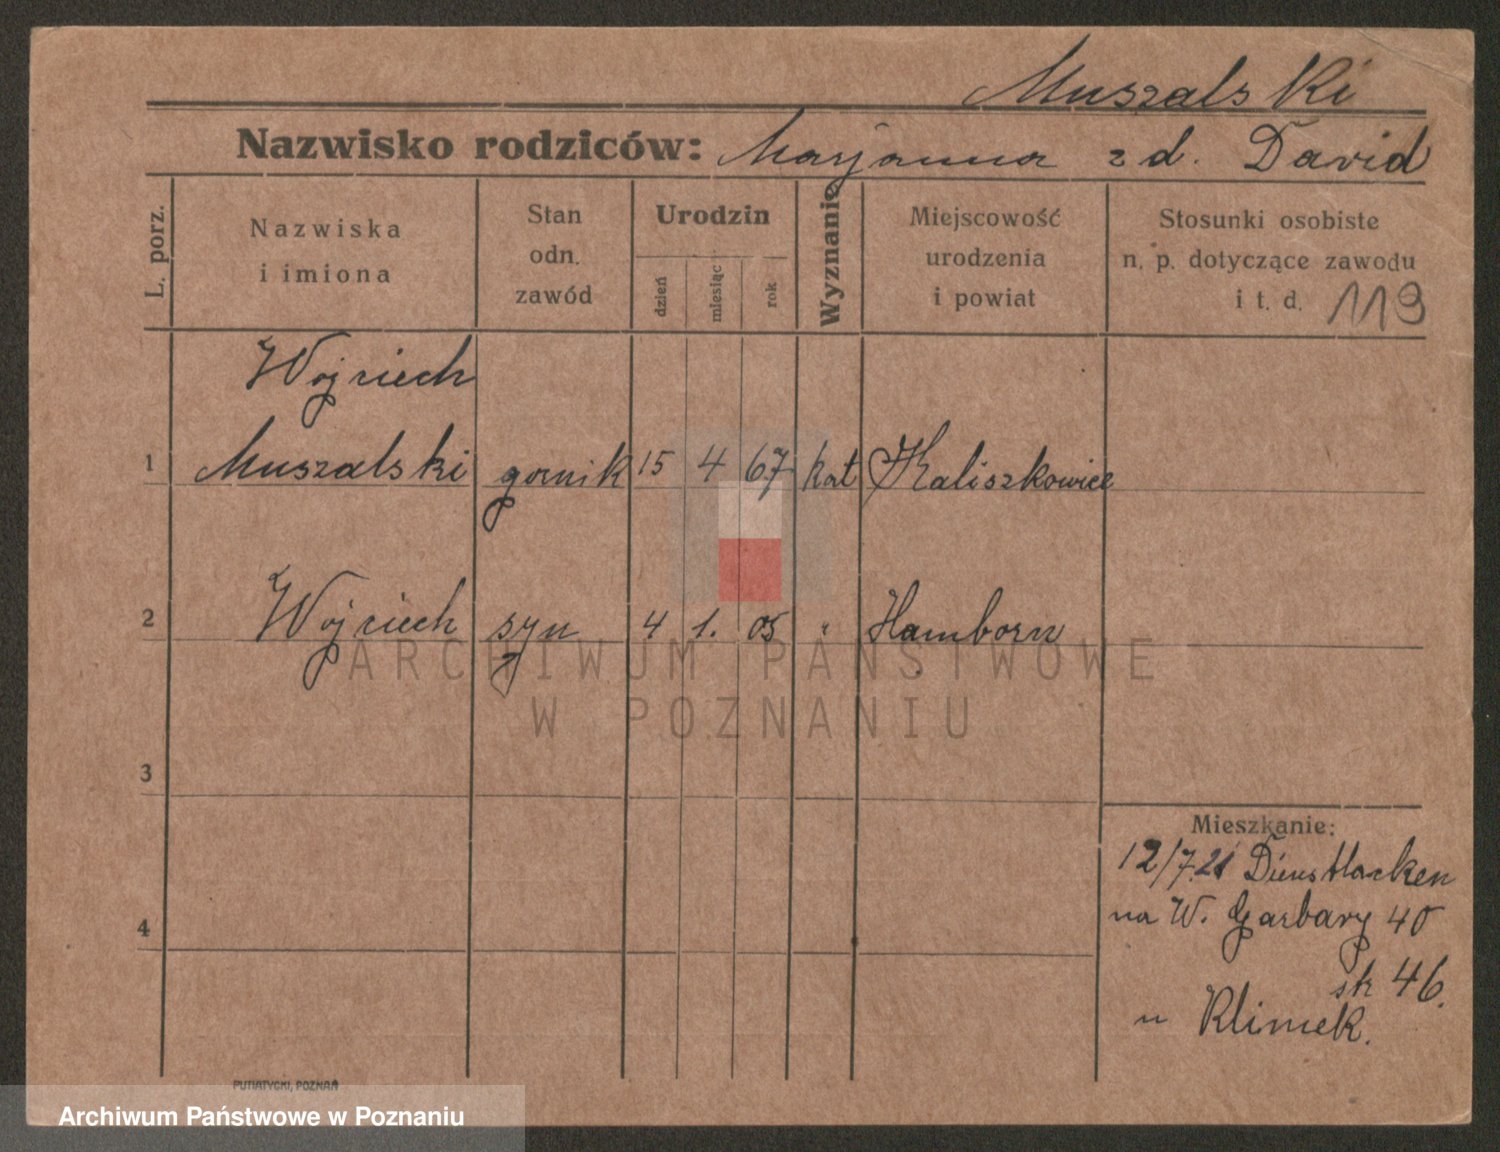 Muszalski
Nazwisko rodziców: Marjanna z d. David
L. porz.
Nazwiska
i imiona
Stan
odn.
zawód
Urodzin
dzień
miesiąc
rok
Wyznanie
Miejscowość
urodzenia
i powiat
Stosunki osobiste
n. p. dotyczące zawodu
i t. d. 119
Wojciech
1 Muszalski gornik 15 4 67 kat Kaliszkowice
2 Wojciech syn 4 1. 05 " Hamborn
3
4
Mieszkanie:
12/7.21 Dienstlacken
na W. Garbary 40
sk 46.
u Klimek.
PUTIATYCKI, POZNAŃ
ARCHIWUM PAŃSTWOWE
W POZNANIU
Archiwum Państwowe w Poznaniu